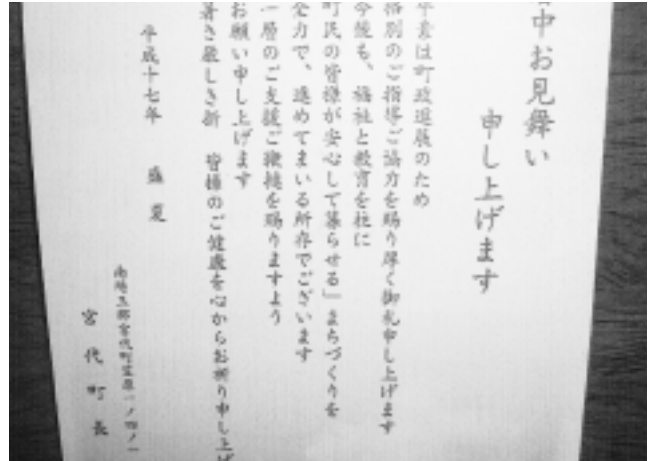 中お見舞い
申し上げます
平素は町政進展のため
格別のご指導ご協力を賜り厚く御礼申し上げます
今後も、福祉と教育を柱に
町民の皆様が安心して暮らせる」まちづくりを
全力で、進めてまいる所存でございます
一層のご支援ご鞭撻を賜りますよう
お願い申し上げます
暑さ厳しき折 皆様のご健康を心からお祈り申し上げ
平成十七年 盛夏
南埼玉郡宮代町笠原一ノ四ノ一
宮代町長